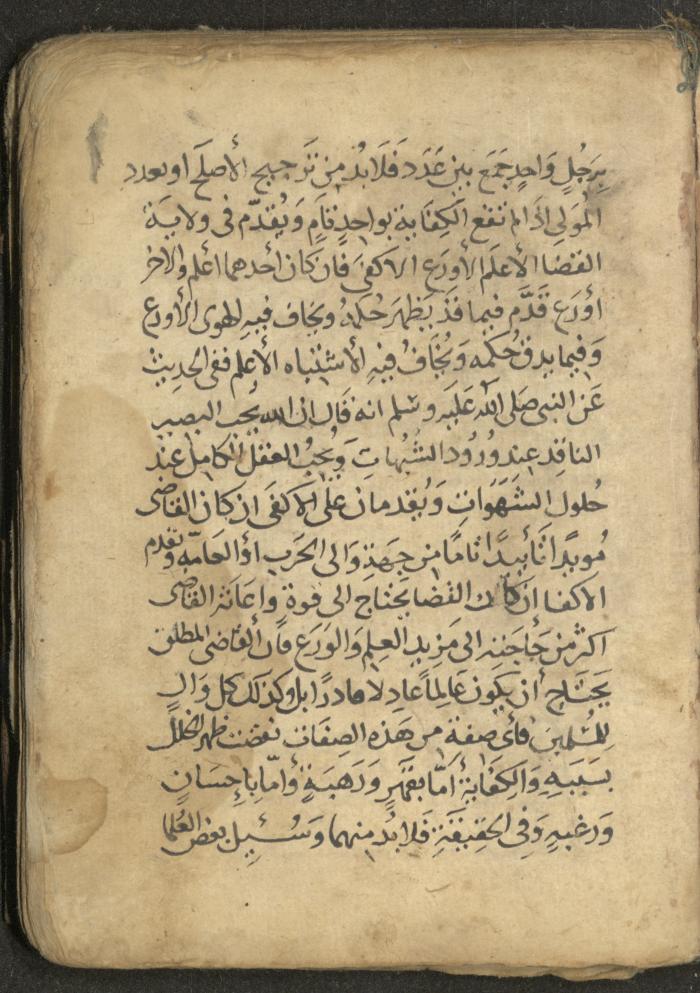 بِرَجُلٍ وَاحِدٍ جَمَعَ بين عَدَد فَلَا بُدَّ مِن تَرجيح الأصلَح او تعدد
المُوَلى اذَا لم تقع الكِفَاية بواحِدٍ تَامٍ وَيُقَدّم فى ولاية
القضا الأعلَم الأورَع الاكفَى فان كان أحدهما اعلم والاخر
أورَع قَدَّم فيما قَد يَظهَر حُكمُهُ ويخاف فيهِ الهوى الأورع
وَفيما يدق حُكمه وَيُخَافُ فيهِ الأشتباه الأعلم ففى الحديث
عَن النبى صَلى الله عَليَه وسَلم انه قَال ان الله يُحب البصير
الناقِد عِند وُرُود الشُبُهاتِ وَيُحِبُ العقل الكامِل عِند
حُلول الشَهَوَاتِ وَيُقدمان عَلى الاكفَى ان كان القَاضى
مُويدًا تَأييدًا تامًا من جِهَةِ وَالى الحَرَب اوْ العَامّةِ وَيقدم
الاكفا ان كان القضا يَحتَاج الى قوة وَاعَانَة القَاضى
اكثر من حَاجَتِهِ الى مَزيدِ العِلم وَالوَرَع فان القَاضى المطلق
يَحتَاج أن يكون عَالِمًا عَادِلا قادرًا بل وكذلك كل وَالٍ
لِلمُسلمين فأى صِفة من هَذه الصِفَات نقصت ظهر الخلل
بسَبَبهِ وَالكِفَاية أمّا بقَهَرٍ وَرَهبَةٍ وَأمّا بإحِسَانٍ
وَرَغبهٍ وَفى الحَقيقَةِ فَلا بُدّ منهما وَسُئِل بعض العُلما